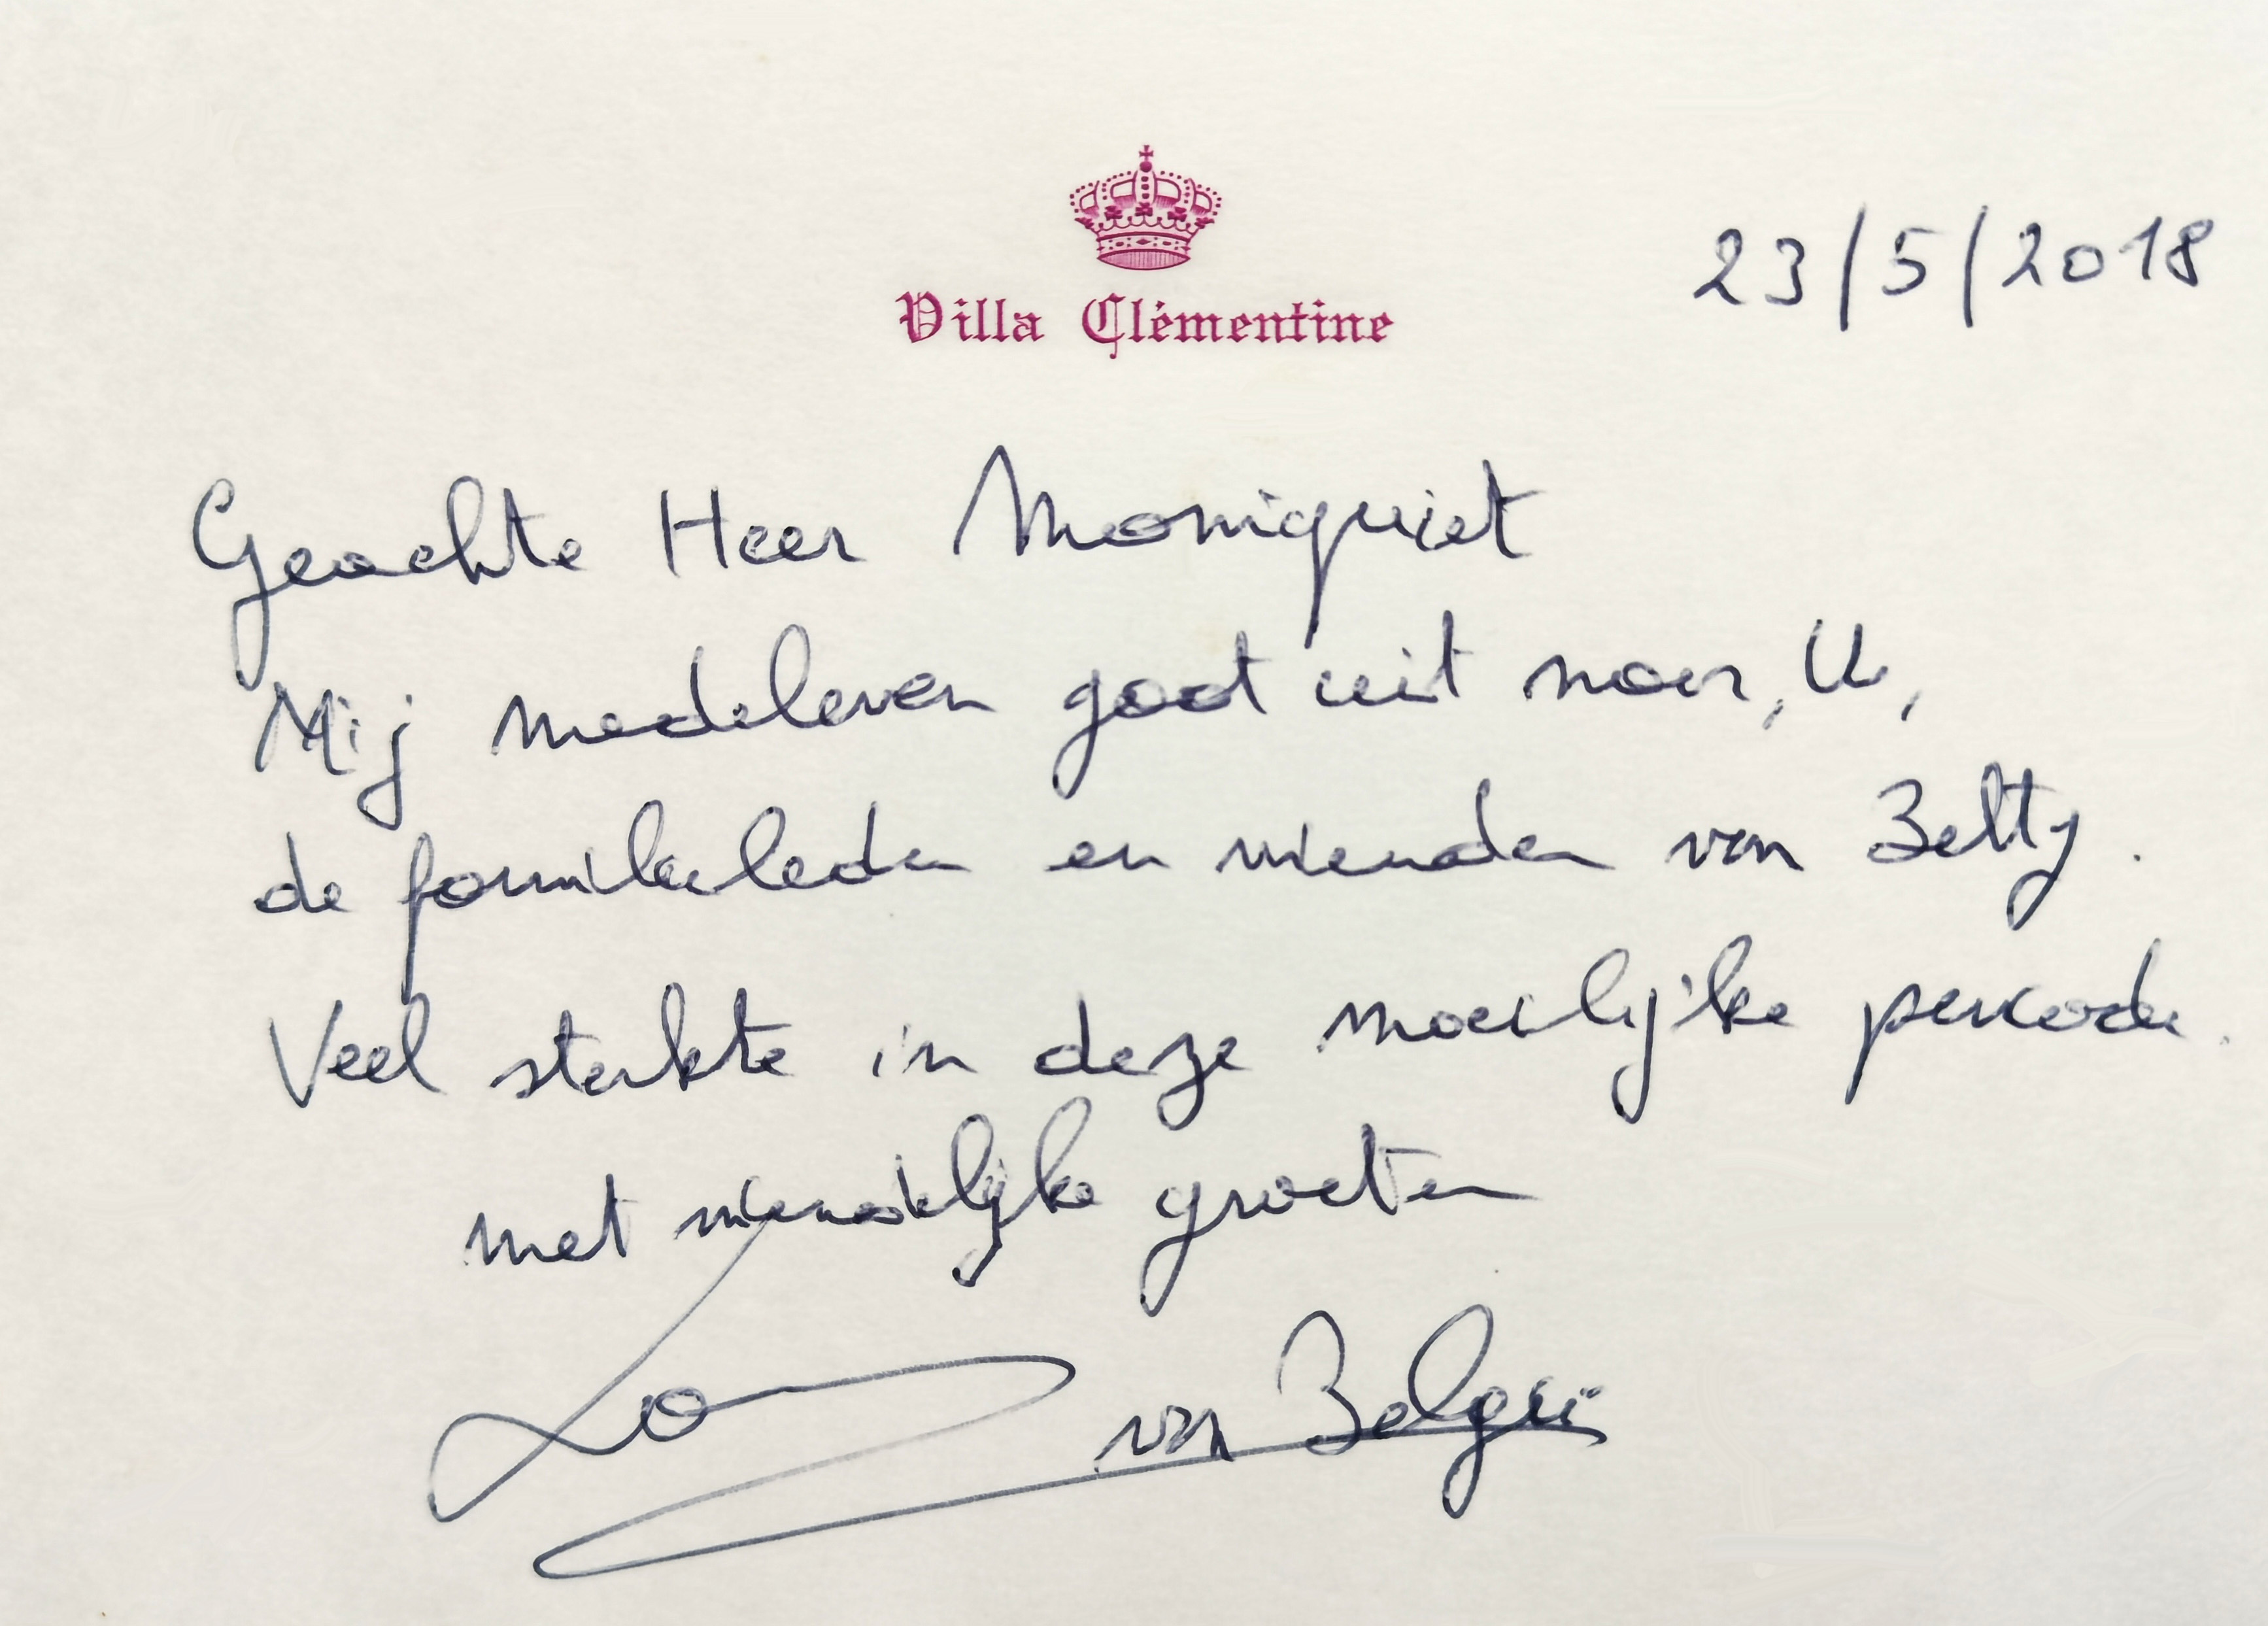 Villa Clémentine
23/5/2018
Geachte Heer Moniquet
Mij medeleven gaat uit naar, U,
de familieleden en vrienden van Betty.
Veel sterkte in deze moeilijke periode.
met vriendelijke groeten
van België